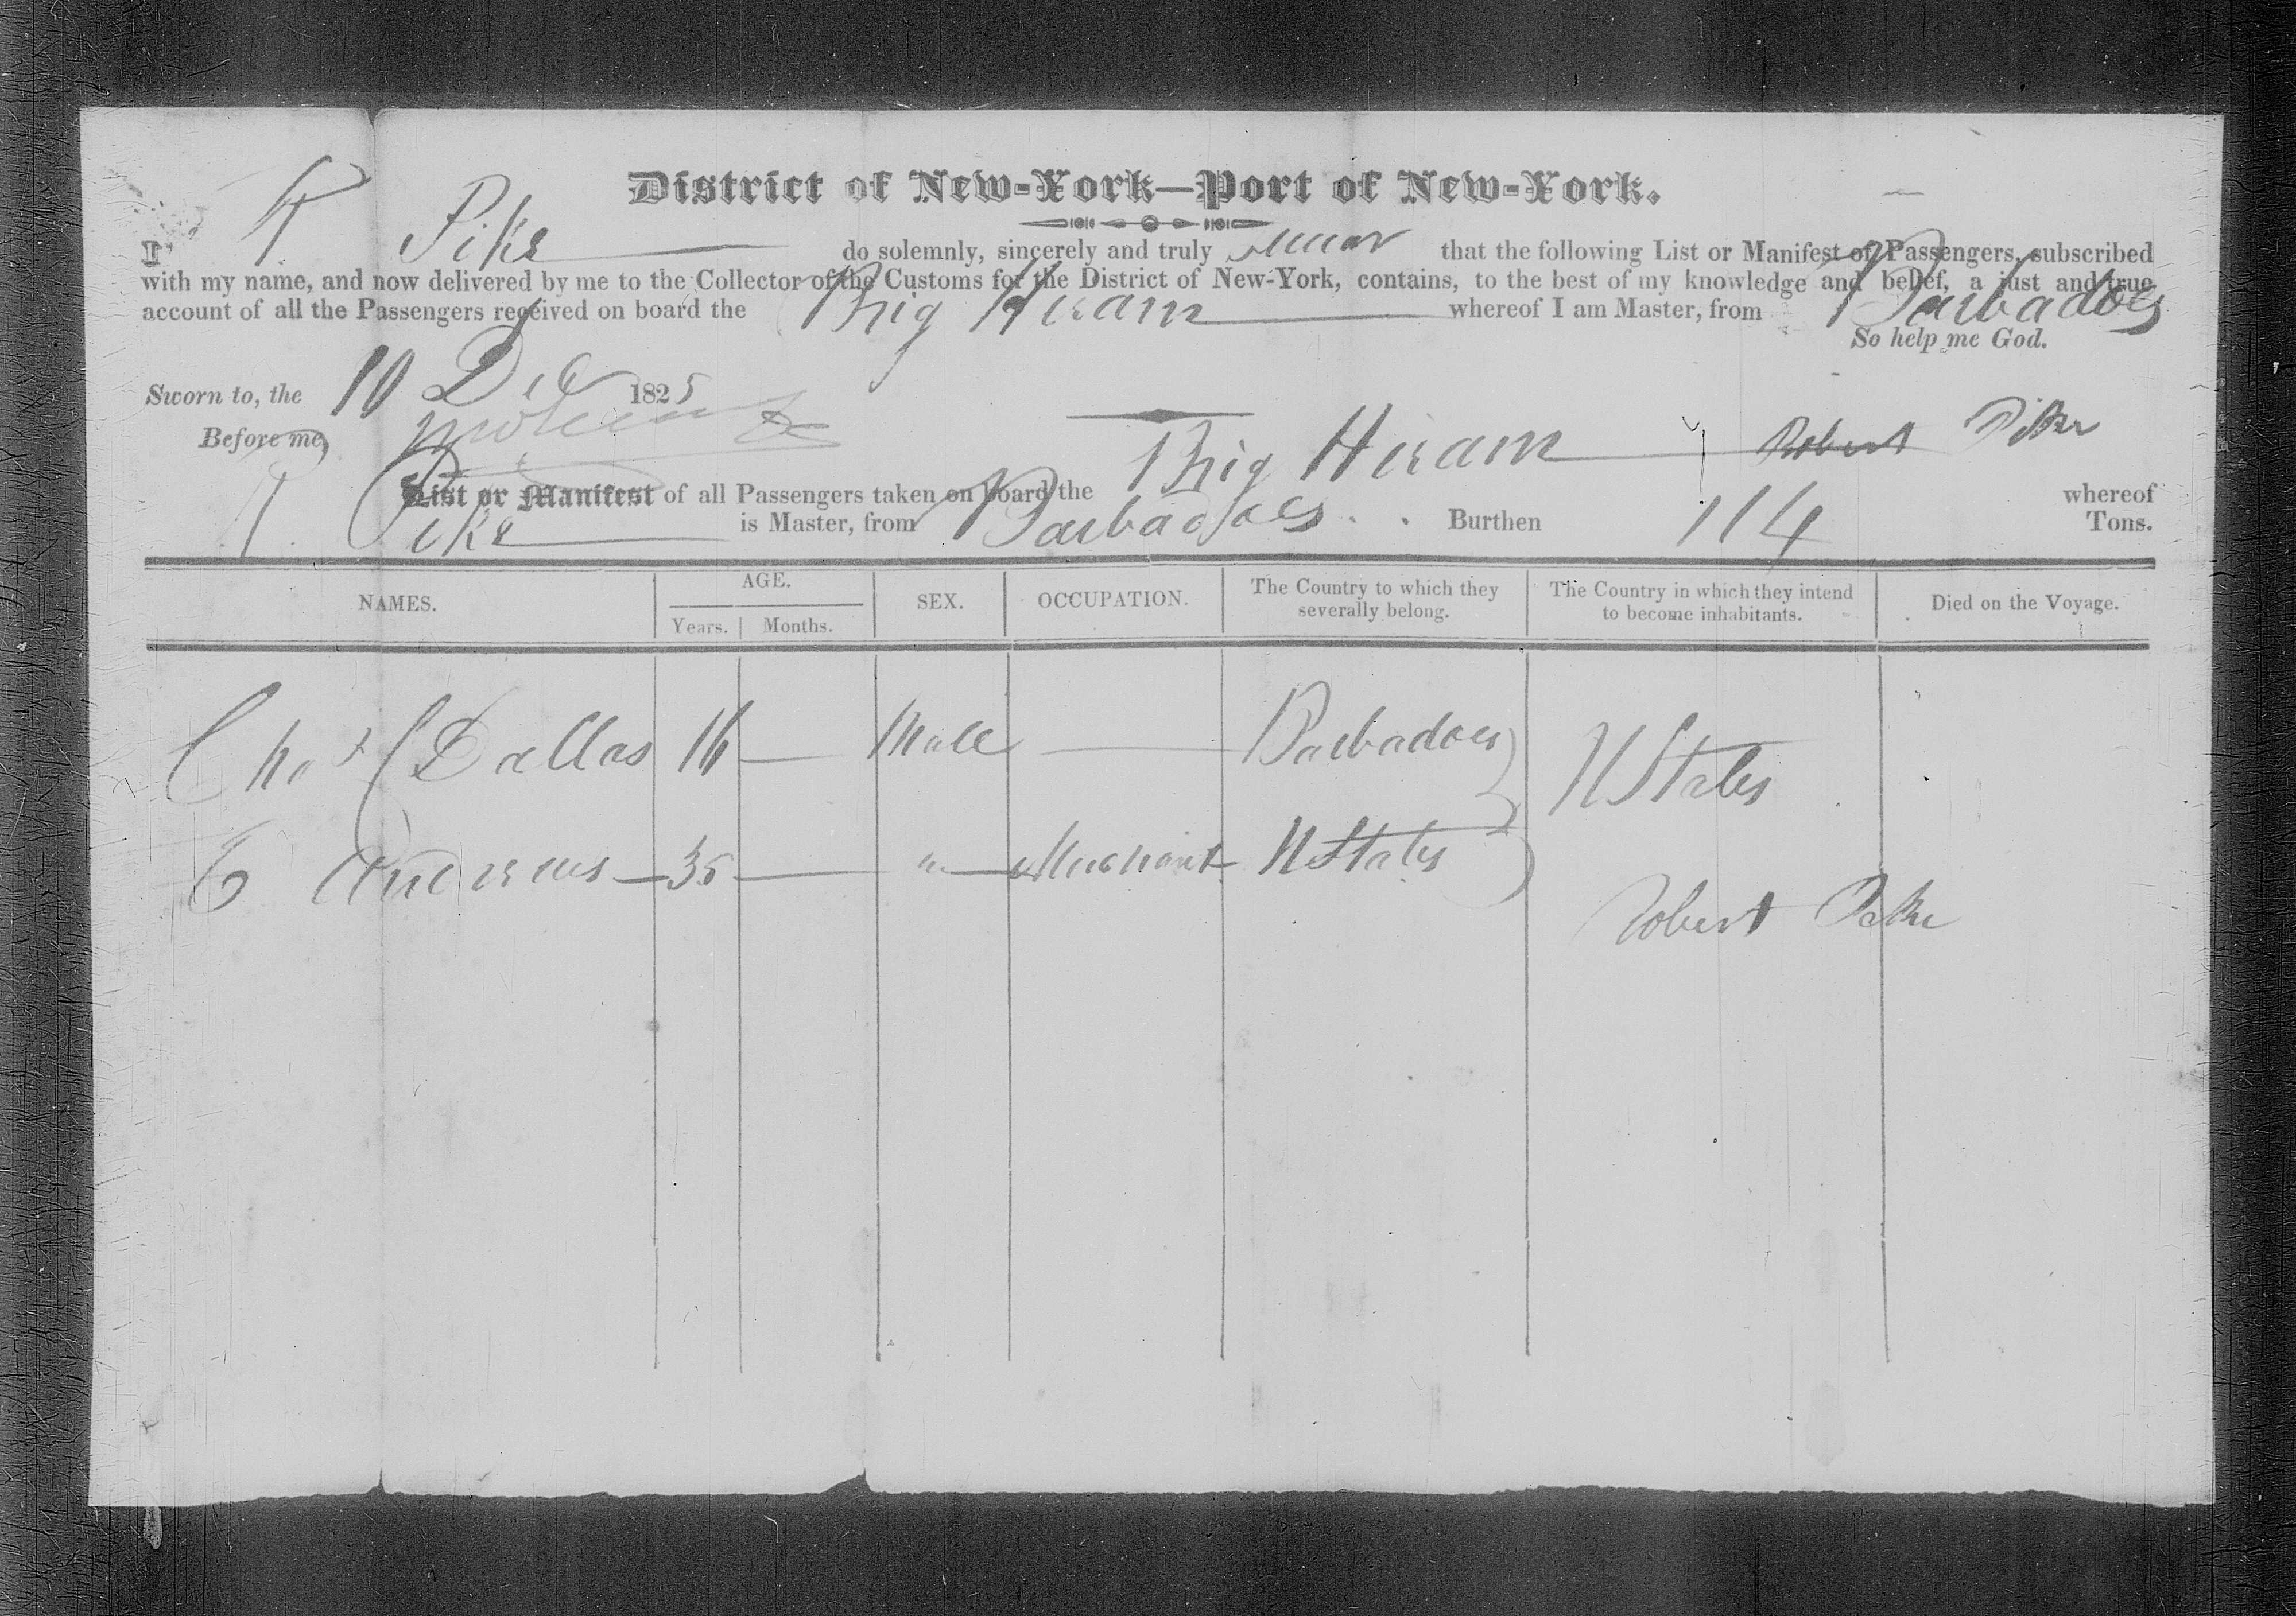 District of New-York—Port of New-York.
I Pike do solemnly, sincerely and truly swear that the following List or Manifest of Passengers, subscribed
with my name, and now delivered by me to the Collector of the Customs for the District of New-York, contains, to the best of my knowledge and belief, a just and true
account of all the Passengers received on board the Brig Hiram whereof I am Master, from Barbadoes
So help me God.
Sworn to, the 10 Dec 1825
Before me, Robert Pike
List or Manifest of all Passengers taken on board the Brig Hiram whereof
Pike is Master, from Barbadoes Burthen 114 Tons.
NAMES. AGE. SEX. OCCUPATION. The Country to which they severally belong. The Country in which they intend to become inhabitants. Died on the Voyage.
Years. Months.
Chas Dallas 16 — Male — Barbadoes U States
Andrews — 35 — " — Merchant U States
Robert Pike